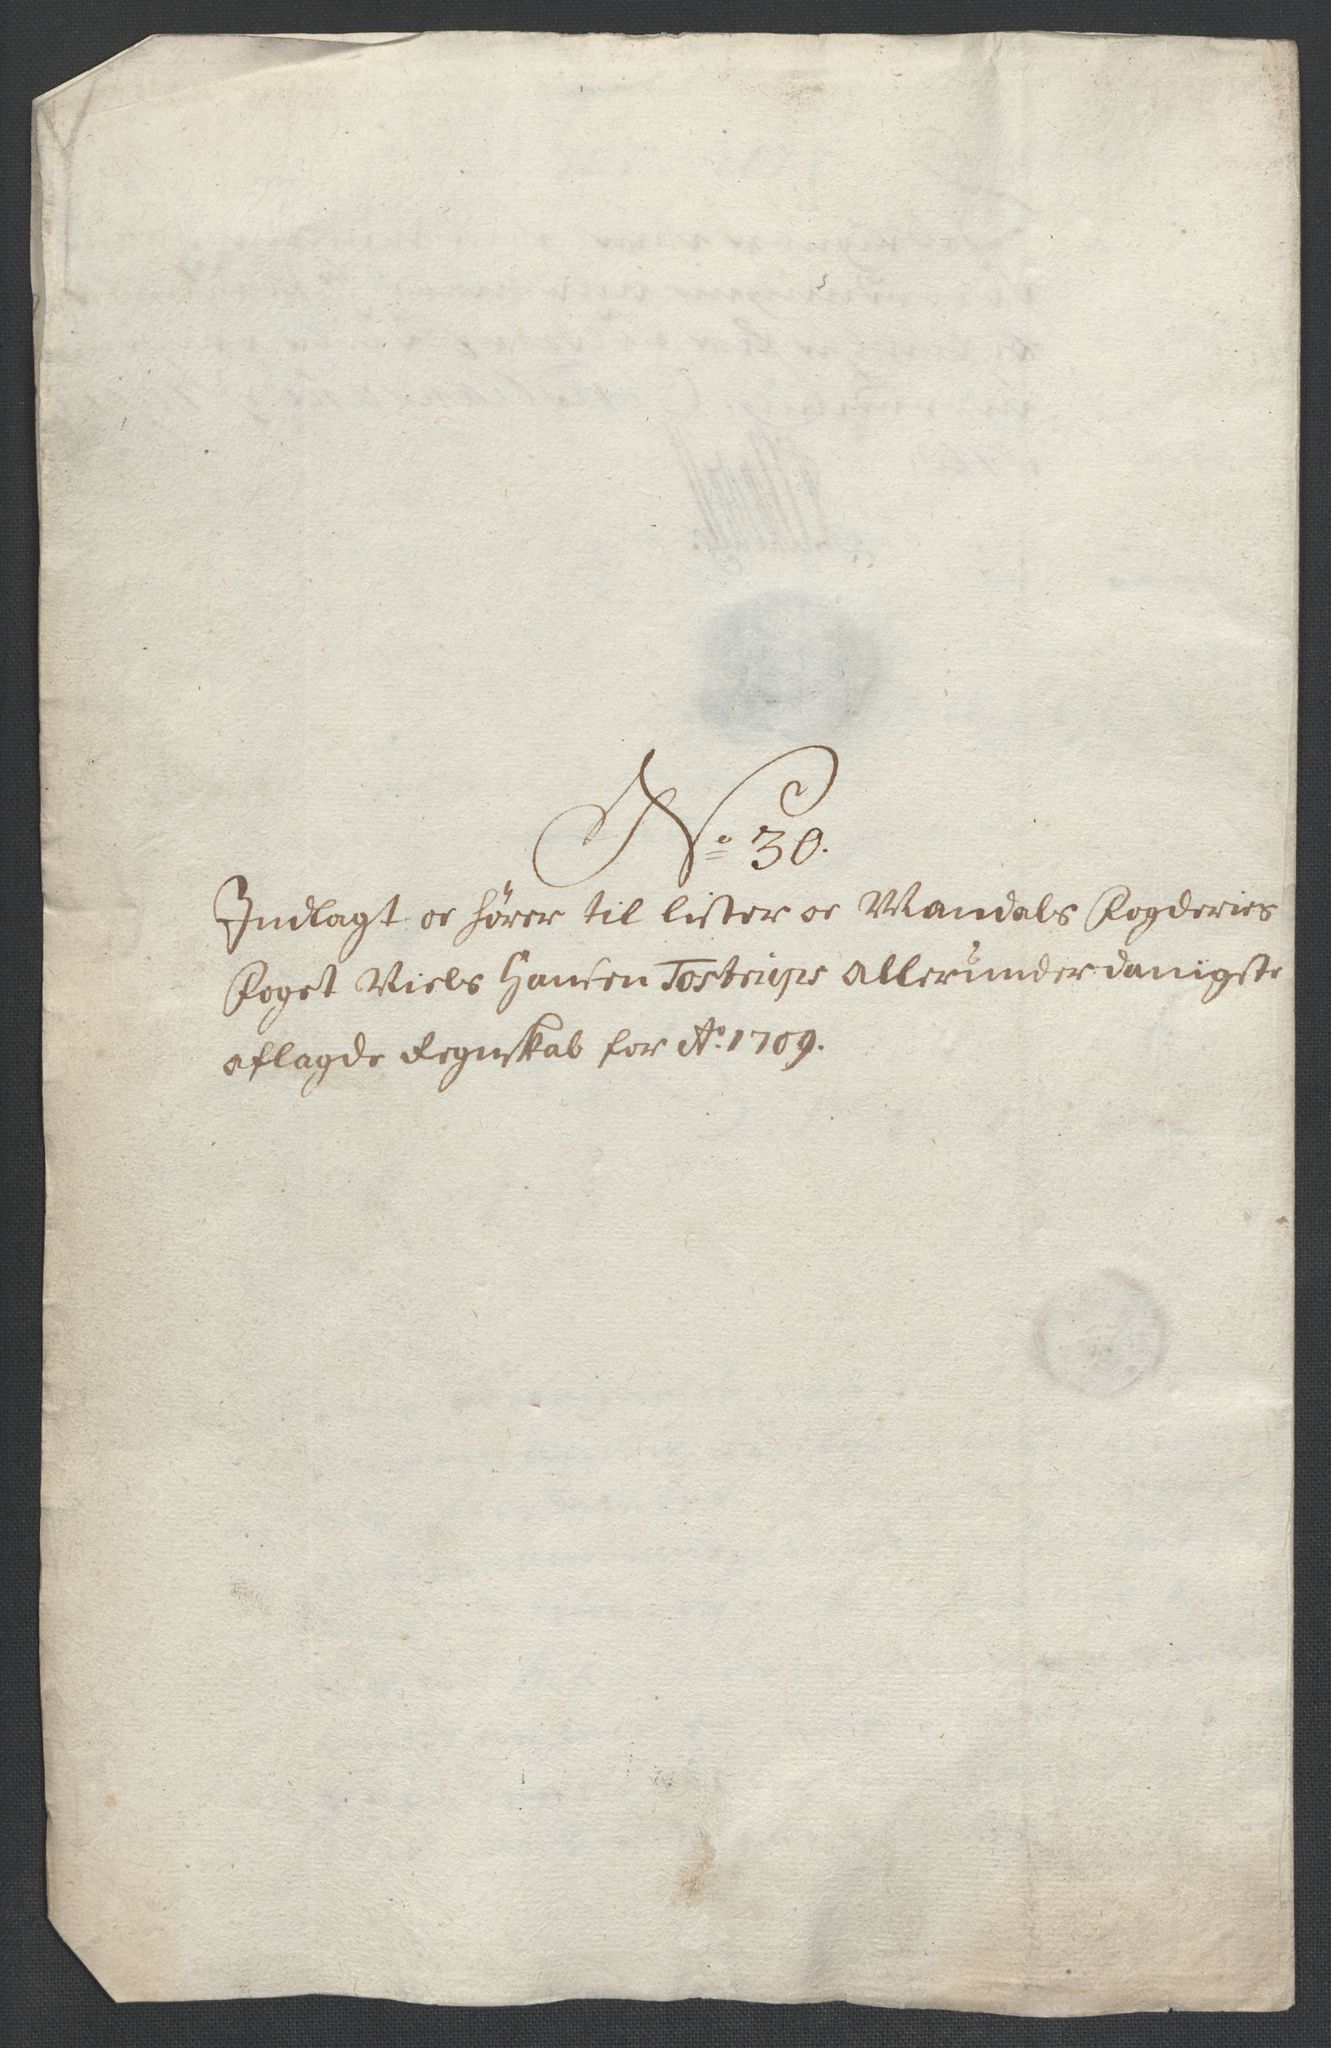 No 30.
Indlagt oc hører til Lister oc Mandals Fogderies
Foget Niels Hansen Tostrups Allerunderdanigste
aflagde Regnskab for Ao. 1709.